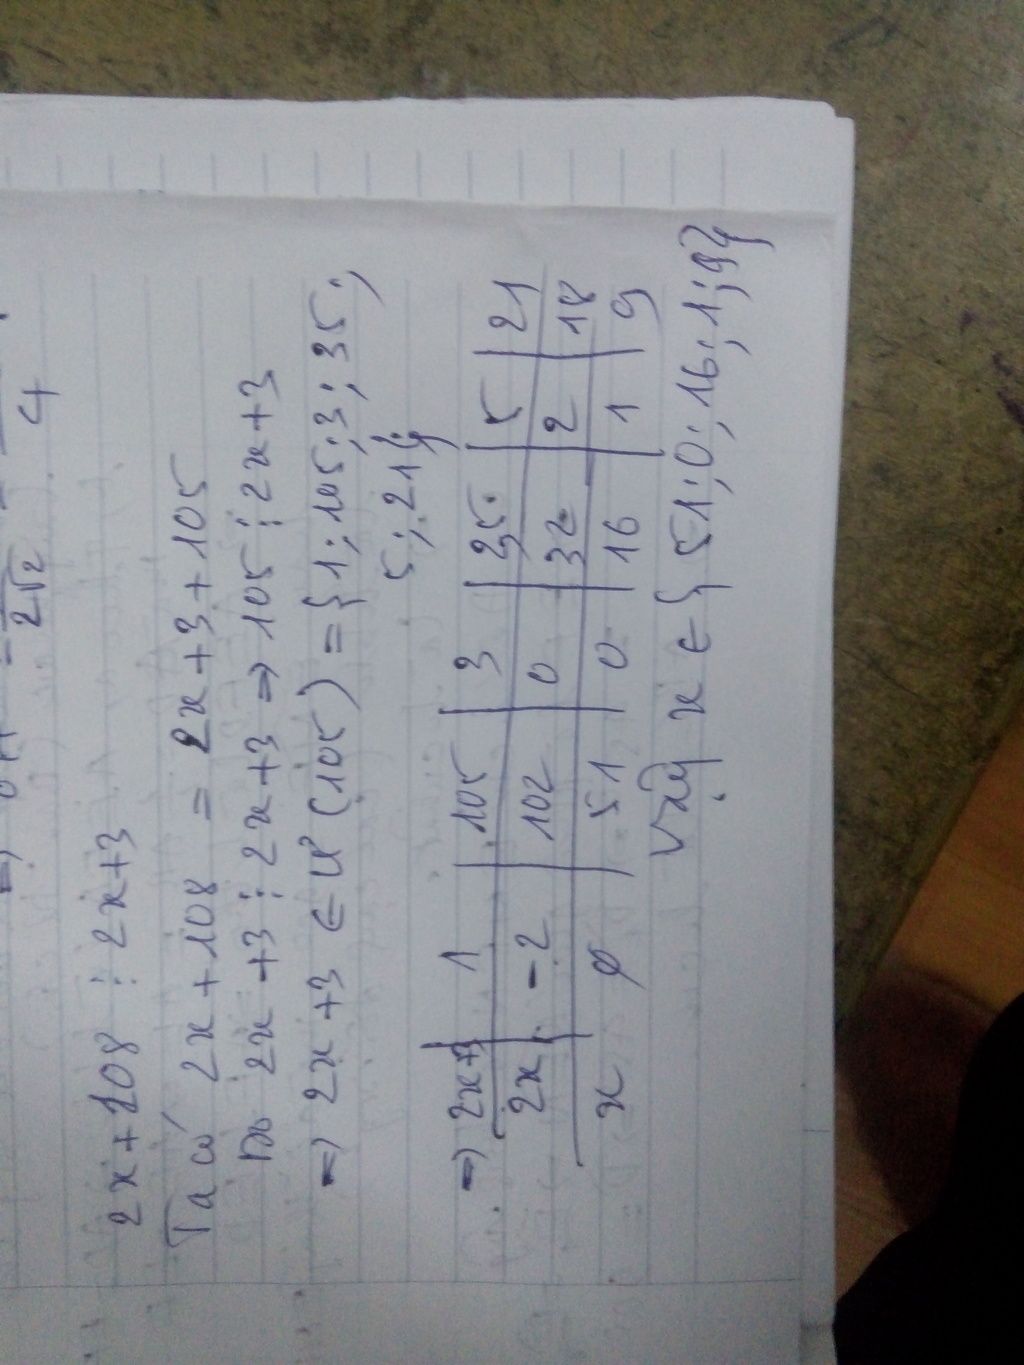 2√2 4
2x+108 ⋮ 2x+3
Ta có 2x+108 = 2x+3+105
Do 2x+3 ⋮ 2x+3 => 105 ⋮ 2x+3
=> 2x+3 ∈ Ư(105) = {1; 105; 3; 35;
5; 21}
=> 2x+3 | 1 | 105 | 3 | 35 | 5 | 21
2x | -2 | 102 | 0 | 32 | 2 | 18
x | ϕ | 51 | 0 | 16 | 1 | 9
Vậy x ∈ {51; 0; 16; 1; 9}